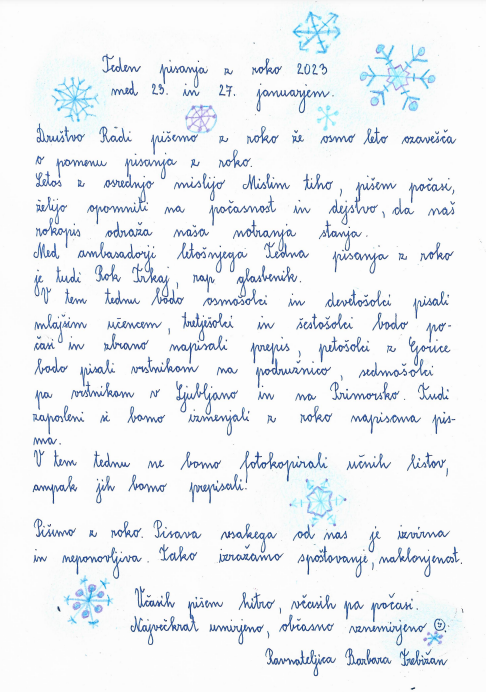 Teden pisanja z roko 2023
med 23. in 27. januarjem.
Društvo Radi pišemo z roko že osmo leto ozavešča
o pomenu pisanja z roko.
Letos z osrednjo mislijo Mislim tiho, pišem počasi,
želijo opomniti na počasnost in dejstvo, da naš
rokopis odraža naša notranja stanja.
Med ambasadorji letošnjega Tedna pisanja z roko
je tudi Rok Trkaj, rap glasbenik.
V tem tednu bodo osmošolci in devetošolci pisali
mlajšim učencem, tretješolci in šestošolci bodo po-
časi in zbrano napisali prepis, petošolci z Gorice
bodo pisali vrstnikom na podružnico, sedmošolci
pa vrstnikom v Ljubljano in na Primorsko. Tudi
zaposleni si bomo izmenjali z roko napisana pis-
ma.
V tem tednu ne bomo fotokopirali učnih listov,
ampak jih bomo prepisali.
Pišimo z roko. Pisava vsakega od nas je izvirna
in neponovljiva. Tako izražamo spoštovanje, naklonjenost.
Včasih pišem hitro, včasih pa počasi.
Največkrat umirjeno, občasno vznemirjeno ☺
Ravnateljica Barbara Trebižan